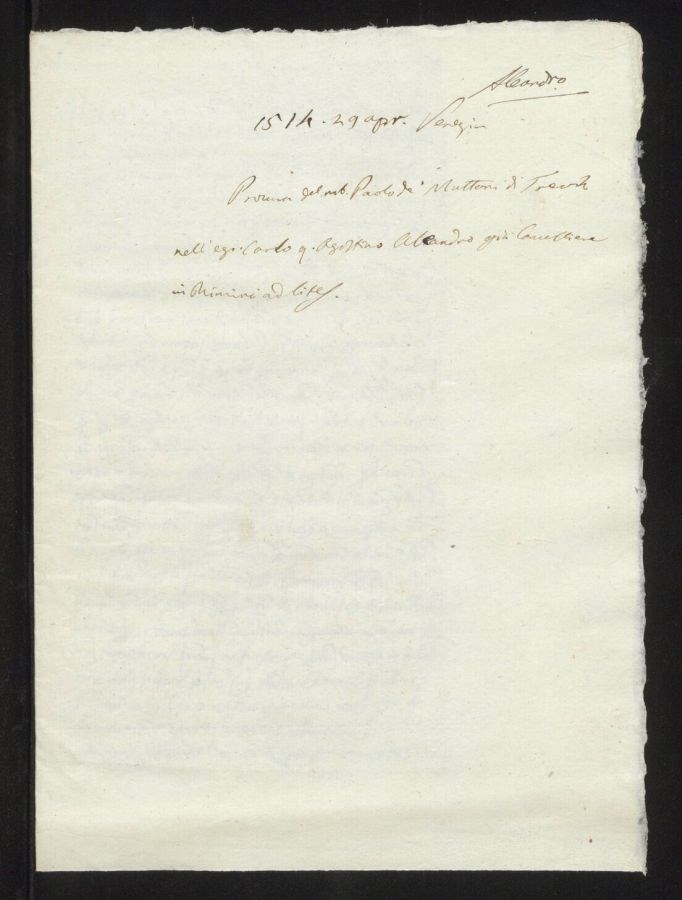 Aleandro
1514. 29 apr. Venezia
Procura del nob. Paolo de' Muttoni di
nell' egr. Carlo q. Agostino Aleandro già
in Rimini ad lites.